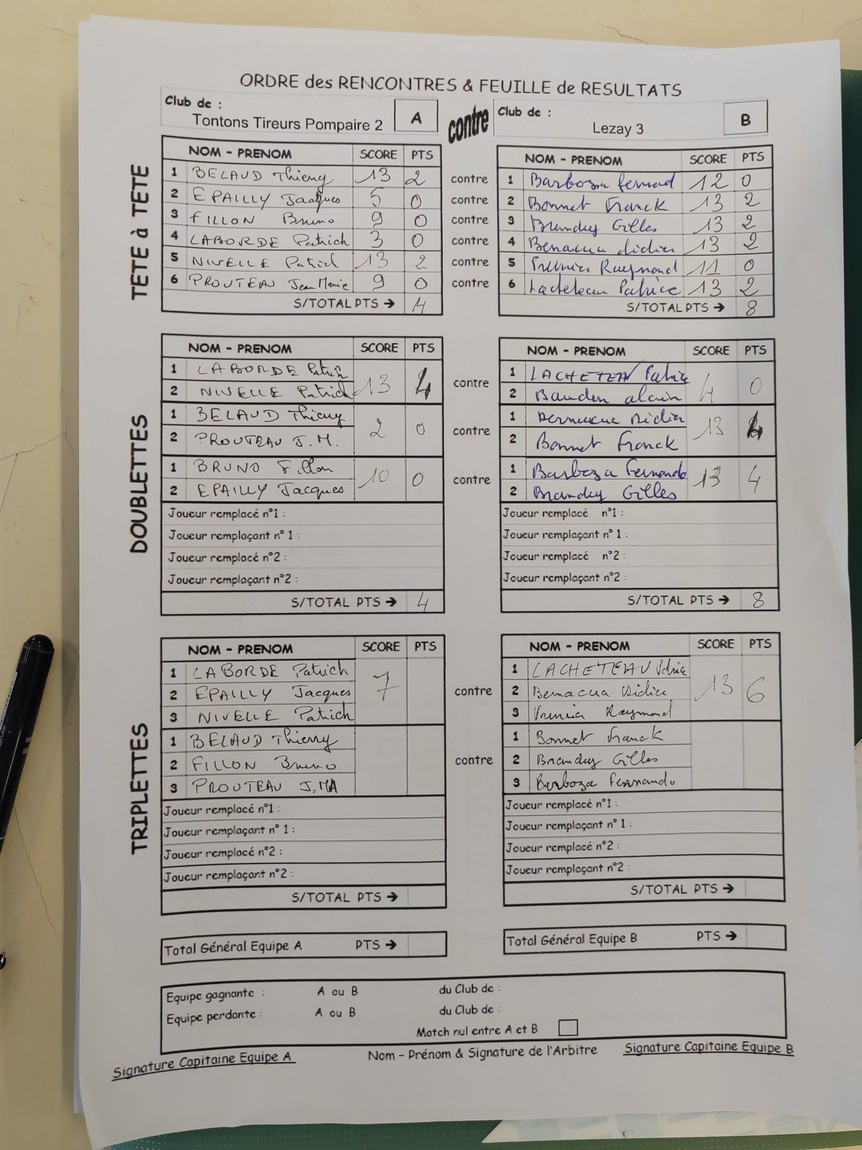 ORDRE des RENCONTRES & FEUILLE de RESULTATS
Club de : Tontons Tireurs Pompaire 2 A contre Club de : Lezay 3 B
TETE à TETE
NOM - PRENOM SCORE PTS NOM - PRENOM SCORE PTS
1 BELAUD Thierry 13 2 contre 1 Barboza 12 0
2 EPAILLY Jacques 5 0 contre 2 Bonnet Franck 13 2
3 FILLON Bruno 9 0 contre 3 Brunduy Gilles 13 2
4 LABORDE Patrich 3 0 contre 4 Benacua didier 13 2
5 NIVELLE Patrich 13 2 contre 5 Raymond 11 0
6 PROUTEAU Jean Marie 9 0 contre 6 Lacheteau Patrice 13 2
S/TOTAL PTS → 4 S/TOTAL PTS → 8
DOUBLETTES
NOM - PRENOM SCORE PTS NOM - PRENOM SCORE PTS
1 LABORDE Patrich 1 LACHETEAU Patrice
2 NIVELLE Patrich 13 4 contre 2 Baudon alain 4 0
1 BELAUD Thierry 1 Didier
2 PROUTEAU J.M. 2 0 contre 2 Bonnet Franck 13 4
1 BRUNO Fillon 1 Barboza Fernando
2 EPAILLY Jacques 10 0 contre 2 Branduy Gilles 13 4
Joueur remplacé n°1 : Joueur remplacé n°1 :
Joueur remplaçant n° 1 : Joueur remplaçant n° 1 :
Joueur remplacé n°2 : Joueur remplacé n°2 :
Joueur remplaçant n°2 : Joueur remplaçant n°2 :
S/TOTAL PTS → 4 S/TOTAL PTS → 8
TRIPLETTES
NOM - PRENOM SCORE PTS NOM - PRENOM SCORE PTS
1 LABORDE Patrich 1 LACHETEAU
2 EPAILLY Jacques 7 contre 2 Benacua Didier 13 6
3 NIVELLE Patrich 3 Raymond
1 BELAUD Thierry 1 Bonnet Franck
2 FILLON Bruno contre 2 Branduy Gilles
3 PROUTEAU J.MA 3 Barboza Fernando
Joueur remplacé n°1 : Joueur remplacé n°1 :
Joueur remplaçant n° 1 : Joueur remplaçant n° 1 :
Joueur remplacé n°2 : Joueur remplacé n°2 :
Joueur remplaçant n°2 : Joueur remplaçant n°2 :
S/TOTAL PTS → S/TOTAL PTS →
Total Général Equipe A PTS → Total Général Equipe B PTS →
Equipe gagnante : A ou B du Club de :
Equipe perdante : A ou B du Club de :
Match nul entre A et B
Signature Capitaine Equipe A Nom - Prénom & Signature de l'Arbitre Signature Capitaine Equipe B